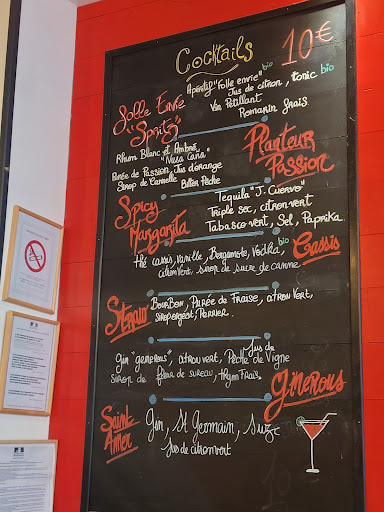 Cocktails 10€
Folle Envie "Spritz"
Apéritif "Folle envie" bio
Jus de citron, tonic bio
Vin Petillant
Romarin frais
Planteur Passion
Rhum Blanc et Ambré
"Nusa Caña"
Purée de Passion, Jus d'orange
Sirop de Cannelle Bitter Pêche
Spicy Margarita
Tequila "J. Cuervo"
Triple sec, citron vert
Tabasco vert, Sel, Paprika
thé cassis, vanille, Bergamote, Vodka, bio
citron vert, sirop de sucre de canne
Cassis
Bourbon, Purée de Fraise, citron vert,
Sirop orgeat, Perrier.
Gin "generous", citron vert, Jus de
Pêche de Vigne
sirop de fleur de sureau, thym Frais.
Generous
Saint Amer
Gin, St Germain, Suze
Jus de citron vert